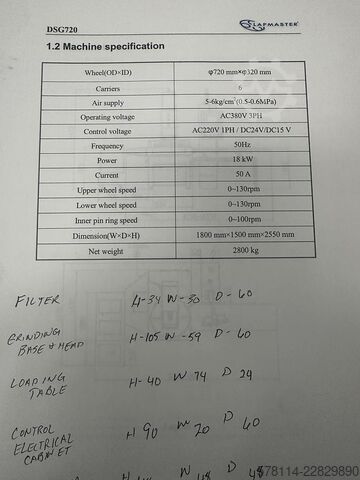 DSG720 LAPMASTER
1.2 Machine specification
Wheel(OD×ID) φ720 mm×φ320 mm
Carriers 6
Air supply 5-6kg/cm²(0.5-0.6MPa)
Operating voltage AC380V 3PH
Control voltage AC220V 1PH / DC24V/DC15 V
Frequency 50Hz
Power 18 kW
Current 50 A
Upper wheel speed 0~130rpm
Lower wheel speed 0~130rpm
Inner pin ring speed 0~100rpm
Dimension(W×D×H) 1800 mm×1500 mm×2550 mm
Net weight 2800 kg
FILTER H-34 W-30 D-60
GRINDING H-105 W-59 D-60
BASE & HEAD
LOADING H-40 W 74 D 24
TABLE
CONTROL H 90 W 20 D 60
ELECTRICAL
CABINET
W 48
578114-22829890